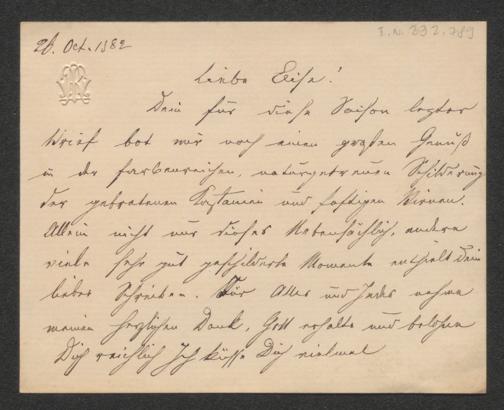 I. N. 232.789
26. Oct. 1882
Liebe Elise!
Dein für diese Saison letzter
Brief bot mir noch einen großen Genuß
in der farbenreichen, naturgetreuen Schilderung
der gebratenen Kastanien und saftigen Birnen.
Allein nicht nur dieses Nebensächlich, andere
viele sehr gut geschilderte Momente enthielt Dein
liebes Schreiben. Für Alles und Jedes nehme
meinen herzlichen Dank, Gott erhalte und belohne
Dich reichlich Ich küsse Dich vielmal